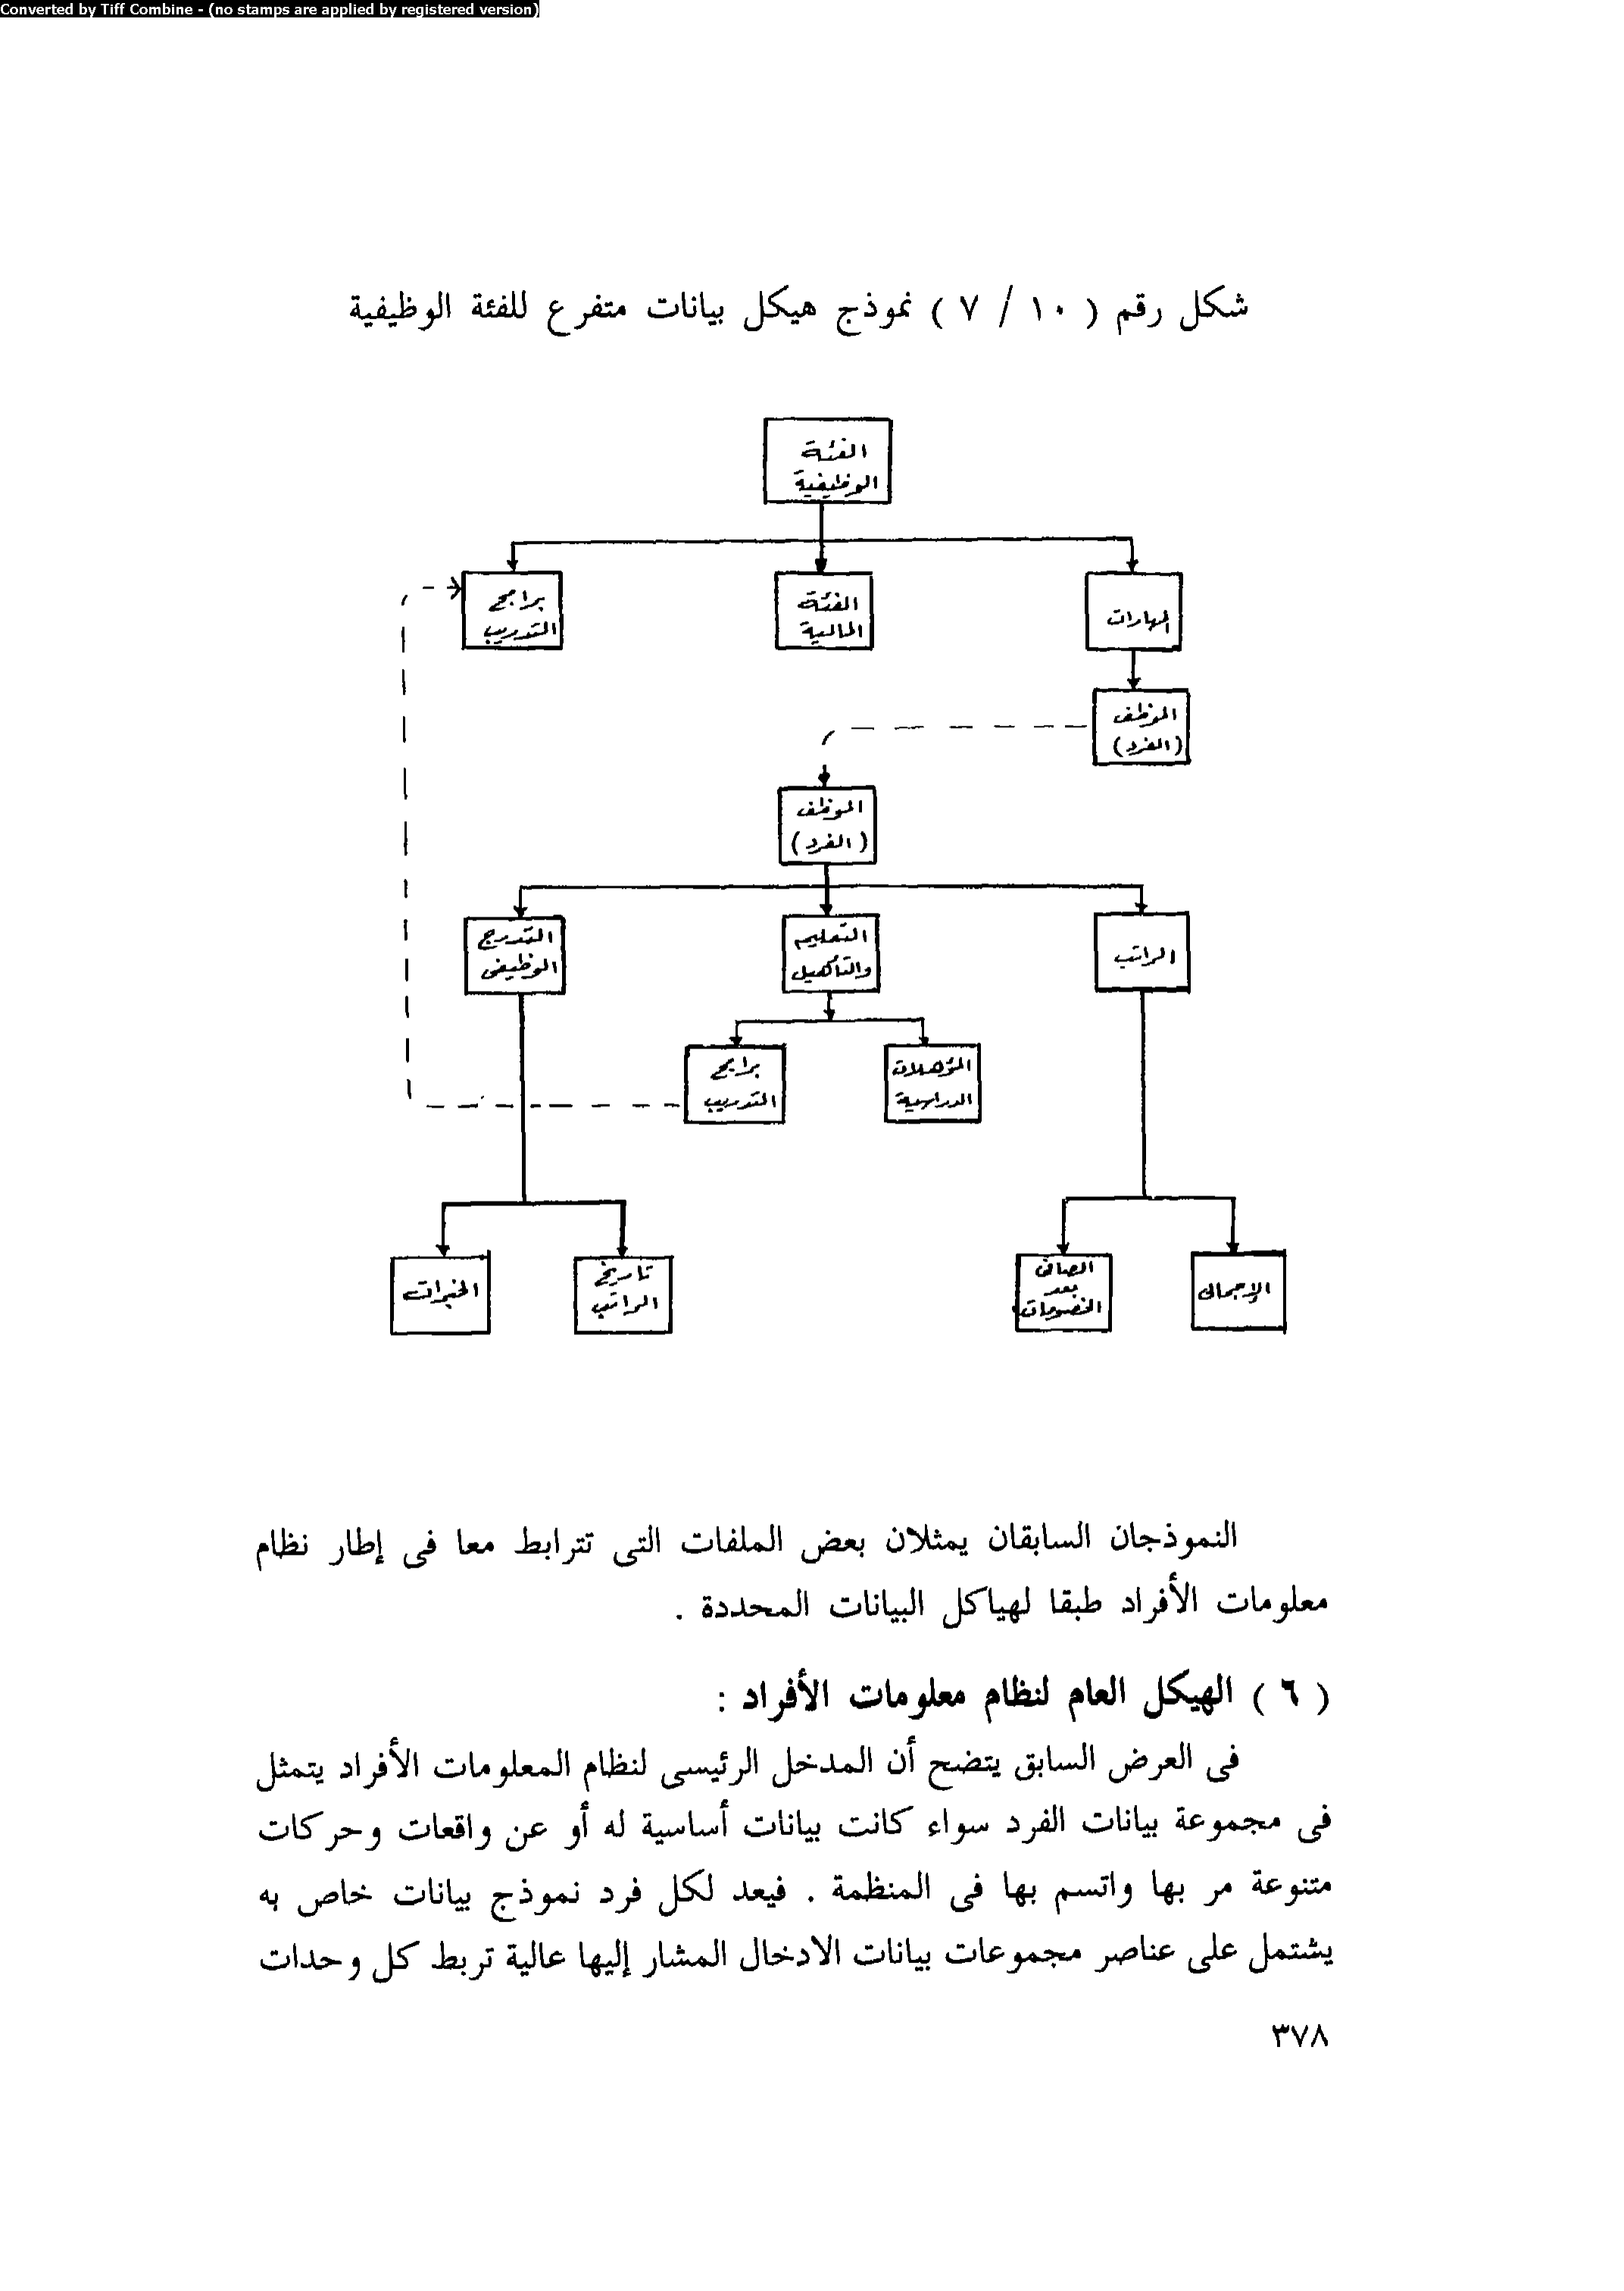 Converted by Tiff Combine - (no stamps are applied by registered version)
شكل رقم ( ١٠ / ٧ ) نموذج هيكل بيانات متفرع للفئة الوظيفية
الفئة
الوظيفية
المهارات
الفئة
المالية
برامج
التدريب
الموظف
(الفرد)
الموظف
(الفرد)
الراتب
التعليم
والتأهيل
التدرج
الوظيفى
المؤهلات
الدراسية
برامج
التدريب
الإجمالى
الصافى
بعد
الخصومات
تاريخ
الراتب
الخبرات
النموذجان السابقان يمثلان بعض الملفات التى تترابط معا فى إطار نظام
معلومات الأفراد طبقا لهياكل البيانات المحددة .
( ٦ ) الهيكل العام لنظام معلومات الأفراد :
فى العرض السابق يتضح أن المدخل الرئيسى لنظام المعلومات الأفراد يتمثل
فى مجموعة بيانات الفرد سواء كانت بيانات أساسية له أو عن واقعات وحركات
متنوعة مر بها واتسم بها فى المنظمة . فيعد لكل فرد نموذج بيانات خاص به
يشتمل على عناصر مجموعات بيانات الادخال المشار إليها عالية تربط كل وحدات
٣٧٨